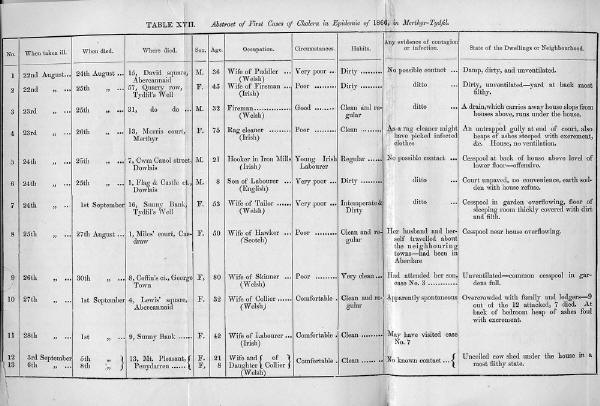 TABLE XVII. Abstract of First Cases of Cholera in Epidemic of 1866, in Merthyr-Tydfil.
No. When taken ill. When died. Where died. Sex. Age. Occupation. Circumstances. Habits. Any evidence of contagion or infection. State of the Dwellings or Neighbourhood.
1 22nd August... 24th August ... 15, David square, Abercannaid M. 36 Wife of Peddler ... (Welsh) Very poor .. Dirty ......... No possible contact ... Damp, dirty, and unventilated.
2 22nd „ ... 25th „ ... 57, Quarry row, Tydfil's Well F. 45 Wife of Fireman ... (Irish) Poor ......... Dirty ......... ditto ... Dirty, unventilated—yard at back most filthy.
3 23rd „ ... 25th „ ... 31, do do ... M. 32 Fireman......... (Welsh) Good ......... Clean and regular ditto ... A drain, which carries away house slops from houses above, runs under the house.
4 23rd „ ... 26th „ ... 13, Morris court, Merthyr F. 75 Rag cleaner ... (Irish) Poor ......... Clean ......... As a rag cleaner might have picked infected clothes An untrapped gully at end of court, also heaps of ashes steeped with excrement, &c. House, no ventilation.
5 24th „ ... 25th „ ... 7, Cwm Canol street, Dowlais M. 21 Hooker in Iron Mills (Irish) Young Irish Labourer Regular ...... No possible contact ... Cesspool at back of house above level of lower floor—offensive.
6 24th „ ... 25th „ ... 1, Flag & Castle ct., Dowlais M. 8 Son of Labourer ... (English) Very poor ... Dirty ......... ditto ... Court unpaved, no convenience, earth sodden with house refuse.
7 24th „ ... 1st September 16, Sunny Bank, Tydfil's Well F. 53 Wife of Tailor ...... (Welsh) Very poor ... Intemperate & Dirty ditto ... Cesspool in garden overflowing, floor of sleeping room thickly covered with dirt and filth.
8 25th „ ... 27th August ... 1, Miles' court, Caedraw F. 50 Wife of Hawker ... (Scotch) Poor ......... Clean and regular Her husband and herself travelled about the neighbouring towns—had been in Aberdare Cesspool near house overflowing.
9 26th „ ... 30th „ ... 8, Coffin's ct., George Town F. 80 Wife of Skinner ... (Welsh) Poor ......... Very clean ... Had attended her son, case No. 3 ......... Unventilated—common cesspool in gardens full.
10 27th „ ... 1st September 4, Lewis' square, Abercannaid F. 32 Wife of Collier ...... (Welsh) Comfortable . Clean and regular Apparently spontaneous Overcrowded with family and lodgers—9 out of the 12 attacked, 7 died. At back of bedroom heap of ashes foul with excrement.
11 28th „ ... 1st „ ... 9, Sunny Bank ...... F. 42 Wife of Labourer ... (Irish) Comfortable . Clean ......... May have visited case No. 7
12 3rd September 5th „ 13, Mt. Pleasant, Penydarren ...... F. 21 Wife and of Collier (Welsh) Comfortable . Clean ......... No known contact ... Unceiled cow shed under the house in a most filthy state.
13 6th „ ... 8th „ F. 8 Daughter